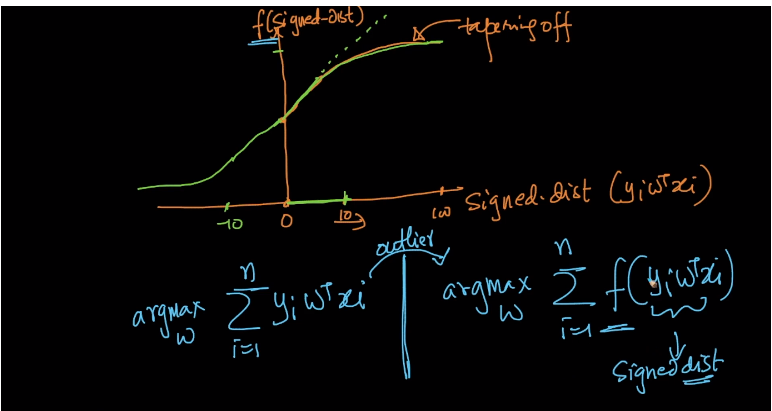 f(signed-dist)
tapering off
-10 0 10 100
signed-dist (yᵢwᵀxᵢ)
outlier
argmax w n Σ i=1 yᵢwᵀxᵢ
argmax w n Σ i=1 f(yᵢwᵀxᵢ)
signed dist